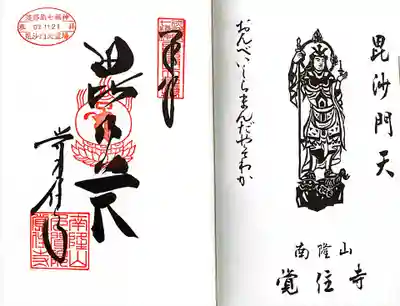 毘沙門天
おんべいしらまんだやそわか
南隆山
覚住寺
奉拝
毘沙門天
覚住寺
淡路島七福神
毘沙門天霊場
南隆山
覚住寺